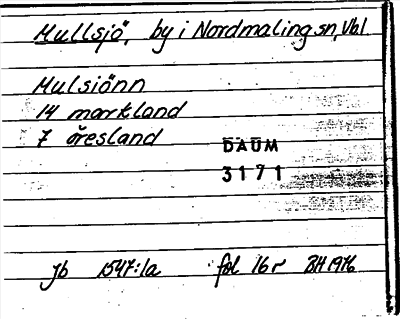 Mullsjö, by i Nordmaling sn, Vbl
Mulsiönn
14 markland
7 öresland
DAUM
3171
jb 1547:1a fol 16r BH 1976